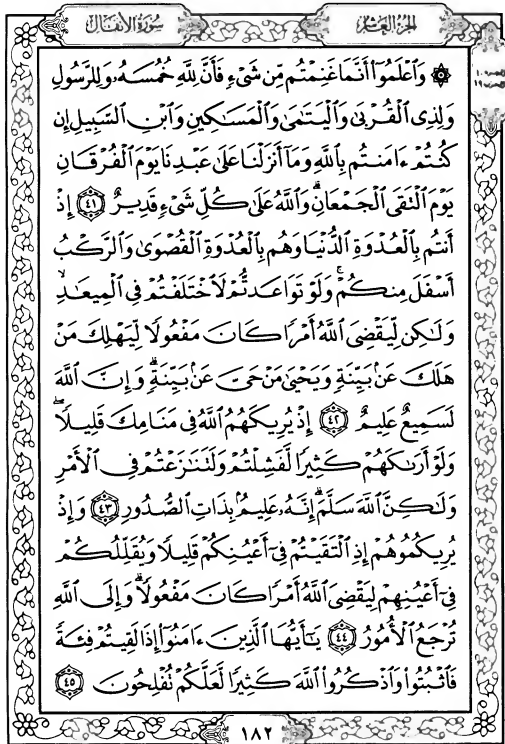 سُورَةُ الأَنفَالِ
الجُزءُ العَاشِرُ
۞ وَٱعْلَمُوٓا۟ أَنَّمَا غَنِمْتُم مِّن شَىْءٍ فَأَنَّ لِلَّهِ خُمُسَهُۥ وَلِلرَّسُولِ
وَلِذِى ٱلْقُرْبَىٰ وَٱلْيَتَـٰمَىٰ وَٱلْمَسَـٰكِينِ وَٱبْنِ ٱلسَّبِيلِ إِن
كُنتُمْ ءَامَنتُم بِٱللَّهِ وَمَآ أَنزَلْنَا عَلَىٰ عَبْدِنَا يَوْمَ ٱلْفُرْقَانِ
يَوْمَ ٱلْتَقَى ٱلْجَمْعَانِ ۗ وَٱللَّهُ عَلَىٰ كُلِّ شَىْءٍ قَدِيرٌ ٤١ إِذْ
أَنتُم بِٱلْعُدْوَةِ ٱلدُّنْيَا وَهُم بِٱلْعُدْوَةِ ٱلْقُصْوَىٰ وَٱلرَّكْبُ
أَسْفَلَ مِنكُمْ ۚ وَلَوْ تَوَاعَدتُّمْ لَٱخْتَلَفْتُمْ فِى ٱلْمِيعَـٰدِ ۙ
وَلَـٰكِن لِّيَقْضِىَ ٱللَّهُ أَمْرًا كَانَ مَفْعُولًا لِّيَهْلِكَ مَنْ
هَلَكَ عَنۢ بَيِّنَةٍ وَيَحْيَىٰ مَنْ حَىَّ عَنۢ بَيِّنَةٍ ۗ وَإِنَّ ٱللَّهَ
لَسَمِيعٌ عَلِيمٌ ٤٢ إِذْ يُرِيكَهُمُ ٱللَّهُ فِى مَنَامِكَ قَلِيلًا ۖ
وَلَوْ أَرَىٰكَهُمْ كَثِيرًا لَّفَشِلْتُمْ وَلَتَنَـٰزَعْتُمْ فِى ٱلْأَمْرِ
وَلَـٰكِنَّ ٱللَّهَ سَلَّمَ ۗ إِنَّهُۥ عَلِيمٌۢ بِذَاتِ ٱلصُّدُورِ ٤٣ وَإِذْ
يُرِيكُمُوهُمْ إِذِ ٱلْتَقَيْتُمْ فِىٓ أَعْيُنِكُمْ قَلِيلًا وَيُقَلِّلُكُمْ
فِىٓ أَعْيُنِهِمْ لِيَقْضِىَ ٱللَّهُ أَمْرًا كَانَ مَفْعُولًا ۗ وَإِلَى ٱللَّهِ
تُرْجَعُ ٱلْأُمُورُ ٤٤ يَـٰٓأَيُّهَا ٱلَّذِينَ ءَامَنُوٓا۟ إِذَا لَقِيتُمْ فِئَةً
فَٱثْبُتُوا۟ وَٱذْكُرُوا۟ ٱللَّهَ كَثِيرًا لَّعَلَّكُمْ تُفْلِحُونَ ٤٥
١٨٢